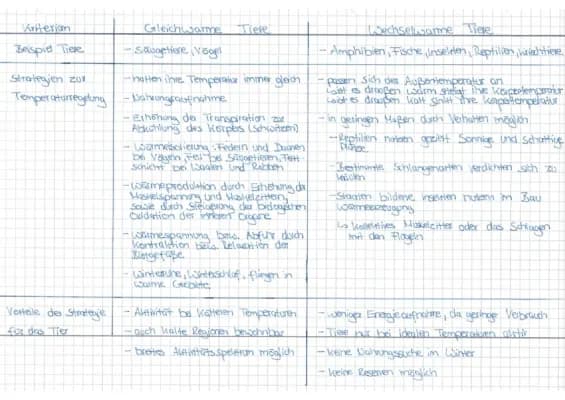 Kriterien Gleichwarme Tiere Wechselwarme Tiere
Beispiel Tiere - Säugetiere, Vögel - Amphibien, Fische, Insekten, Reptilien, Weichtiere
Strategien zur
Temperaturregelung
- halten ihre Temperatur immer gleich
- Nahrungsaufnahme
- Erhöhung der Transpiration zur
Abkühlung des Körpers (schwitzen)
- Wärmeisolierung: Federn und Daunen
bei Vögeln, Fell bei Säugetieren, Fett-
schicht bei Walen und Robben
- Wärmeproduktion durch Erhöhung der
Muskelspannung und Muskelzittern,
sowie durch Steigerung der biologischen
Oxidation der inneren Organe
- Wärmespannung bzw. Abfuhr durch
Kontraktion bzw. Relaxation der
Blutgefäße
- Winterruhe, Winterschlaf, fliegen in
warme Gebiete
- passen sich der Außentemperatur an
ist es draußen warm steigt ihre Körpertemperatur
ist es draußen kalt sinkt ihre Körpertemperatur
- in geringen Maßen durch Verhalten möglich
- Reptilien nutzen gezielt Sonnige und Schattige
Plätze
- Bestimmte Schlangenarten verdichten sich zu
- Staaten bildene Insekten nutzen im Bau
Wärmeerzeugung
↳ kollektives Muskelzittern oder das Schlagen
mit den Flügeln
Vorteile der Strategie
für das Tier
- Aktivität bei kälteren Temperaturen
- auch kalte Regionen bewohnbar
- breites Aktivitätsspektrum möglich
- weniger Energieaufnahme, da geringer Verbrauch
- Tiere nur bei idealen Temperaturen aktiv
- keine Nahrungssuche im Winter
- keine Reserven möglich